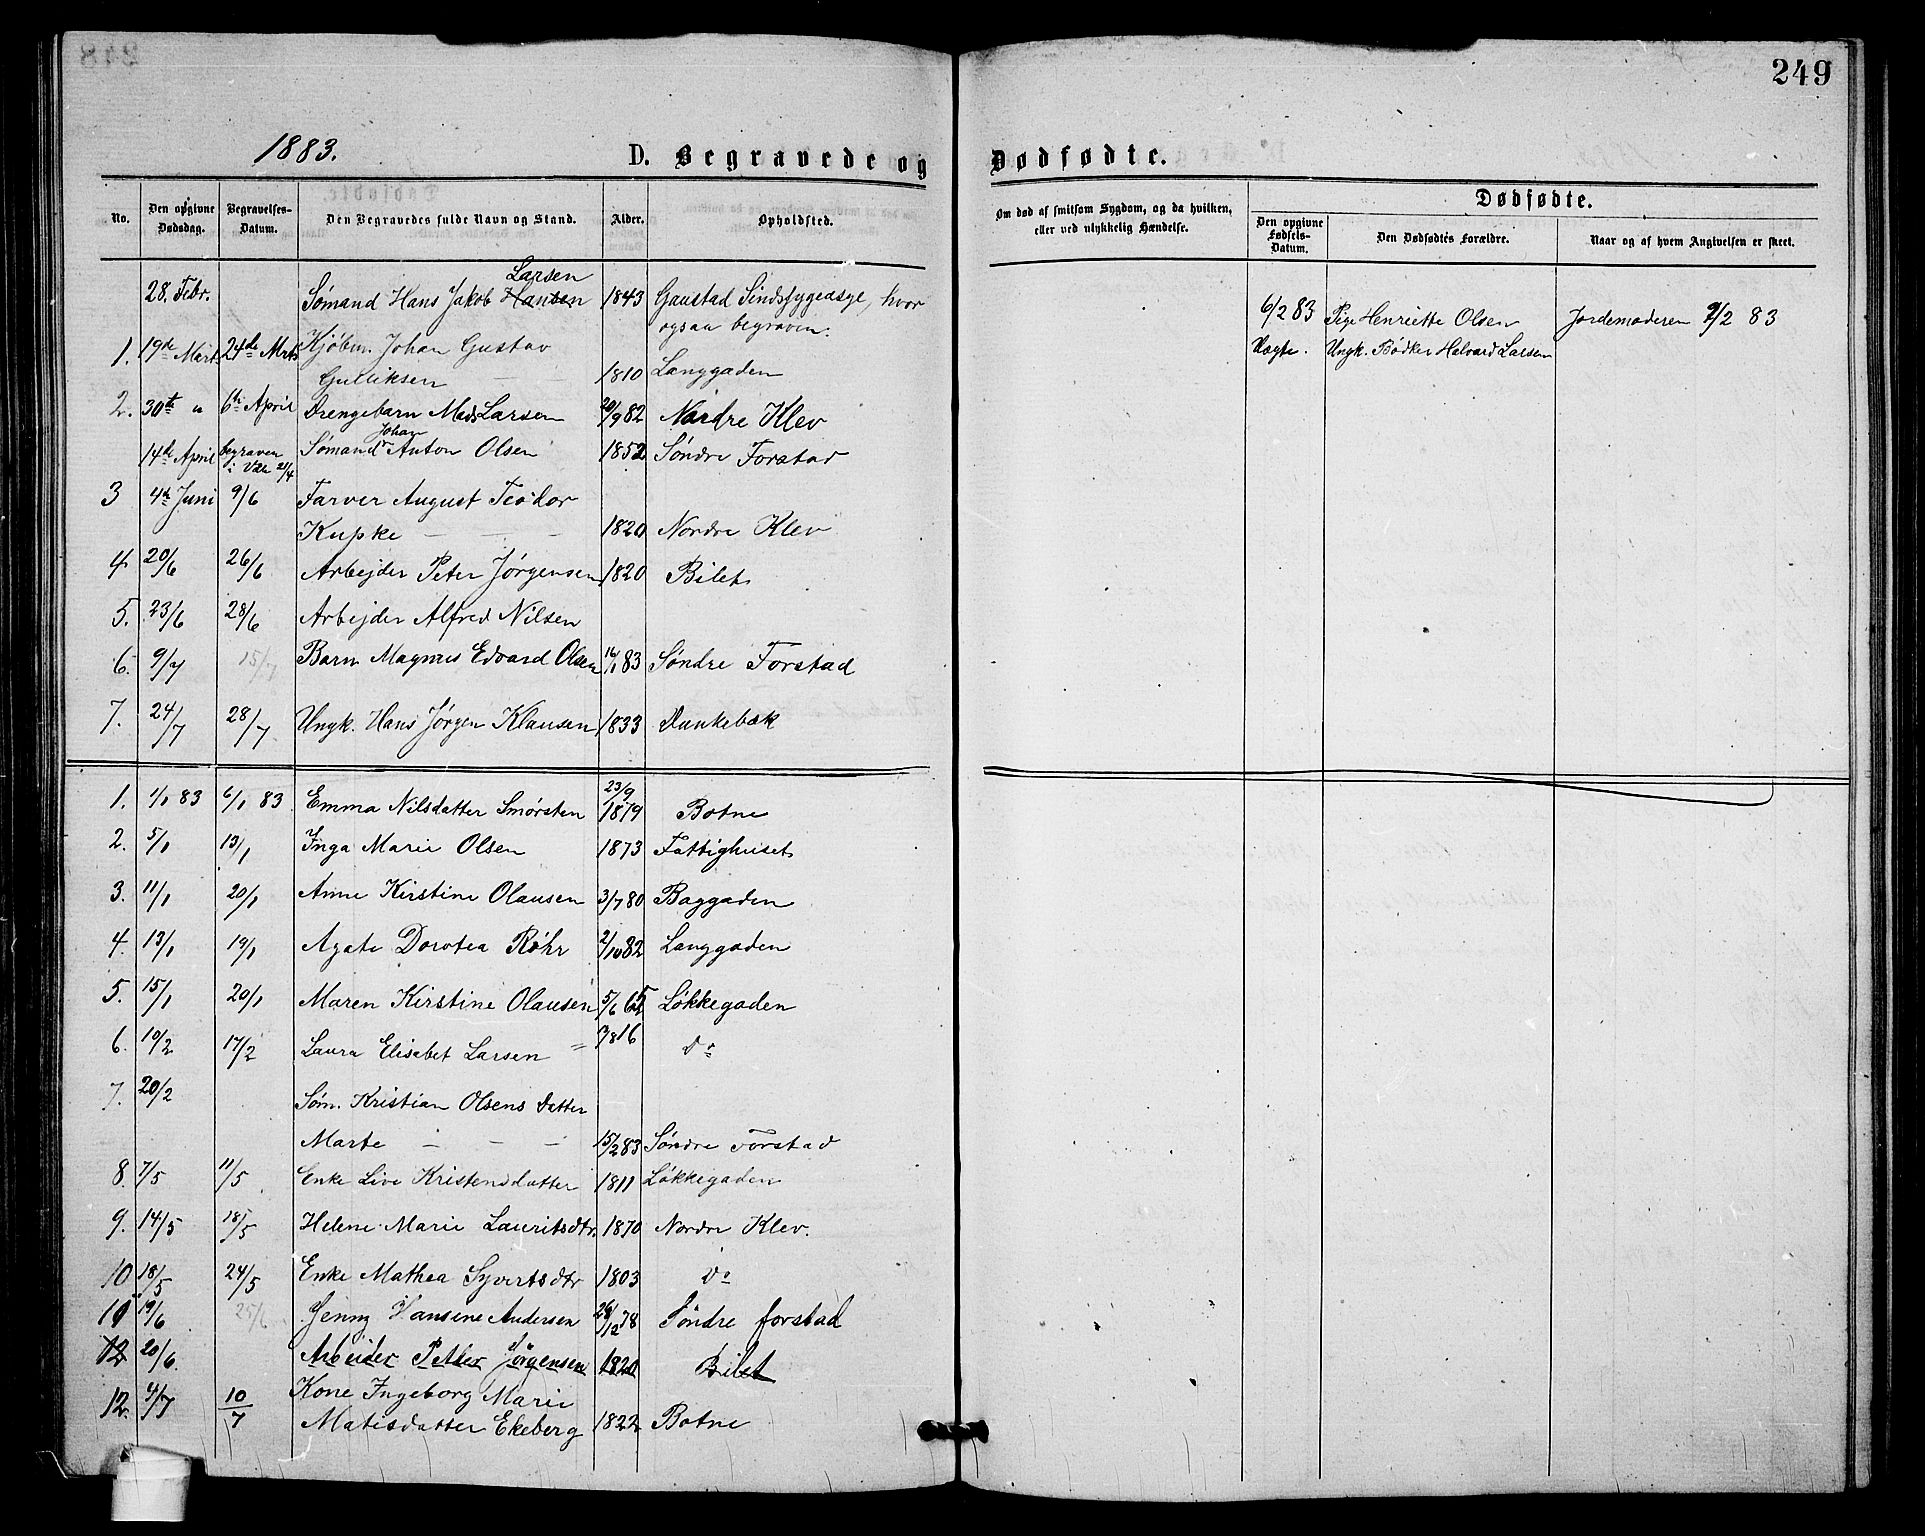 249
1883.
D. Begravede og Dødfødte.
No. Den opgivne Dødsdag. Begravelses-Datum. Den Begravedes fulde Navn og Stand. Alder. Opholdsted.
Om død af smitsom Sygdom, og da hvilken, eller ved ulykkelig Hændelse.
Dødfødte.
Den opgivne Fødsels-Datum. Den Dødfødtes Forældre. Naar og af hvem Angivelsen er skeet.
Larsen
28. Febr. Sømand Hans Jakob Hansen 1843 Gaustad Sindssygeasyl, hvor
ogsaa begraven.
1. 19de Mart 24de Mrts Kjøbm. Johan Gustav
Gulliksen — — 1810 Langgaden
2. 30te " 6te April Drengebarn Mads Larsen 20/9 82 Nordre Klev
Johan
14de April begraven Sømand Anton Olsen 1852 Søndre Forstad
i Vale 21/4
3 4de Juni 9/6 Farver August Teodor
Kupke — — — 1820 Nordre Klev
4 20/6 26/6 Arbejder Peter Jørgensen 1820 Bilet
5. 23/6 28/6 Arbejder Alfred Nilsen
6. 9/7 15/7 Barn Magnus Edvard Olsen 16/1 83 Søndre Forstad
7. 24/7 28/7 Ungk. Hans Jørgen Klausen 1833 Dunkebæk
6/2 83 Pige Henriette Olsen Jordemoderen 9/2 83
Uægte. Ungk. Bødker Halvard Larsen
23/9
1. 1/1 83 6/1 83. Emma Nilsdatter Smørsten 1879 Botne
2. 5/1 13/1 Inga Marie Olsen 1873 Fattighuset
3. 11/1 20/1 Anne Kirstine Olausen 3/7 80 Baggaden
4. 13/1 19/1 Agate Dorotea Røhr 2/10 82 Langgaden
5. 15/1 20/1 Maren Kirstine Olausen 5/6 65 Løkkegaden
6. 10/2 17/2 Laura Elisabet Larsen = 1816 Do
7. 20/2 Søm. Kristian Olsens Datter
Marte — — — 15/2 83 Søndre Forstad
8. 7/5 11/5 Enke Live Kristensdatter 1811 Løkkegaden
9. 14/5 18/5 Helene Marie Lauritsdtr. 1870 Nordre Klev.
10 18/5 24/5 Enke Mathea Syvertsdtr 1803 Do
11 19/6 25/6 Jenny Hansine Andersen 26/12 78 Søndre forstad
12 20/6. Arbeider Petter Jørgensen 1820 Bilet
12. 4/7 10/7 Kone Ingeborg Marie
Matisdatter Ekeberg 1822 Botne